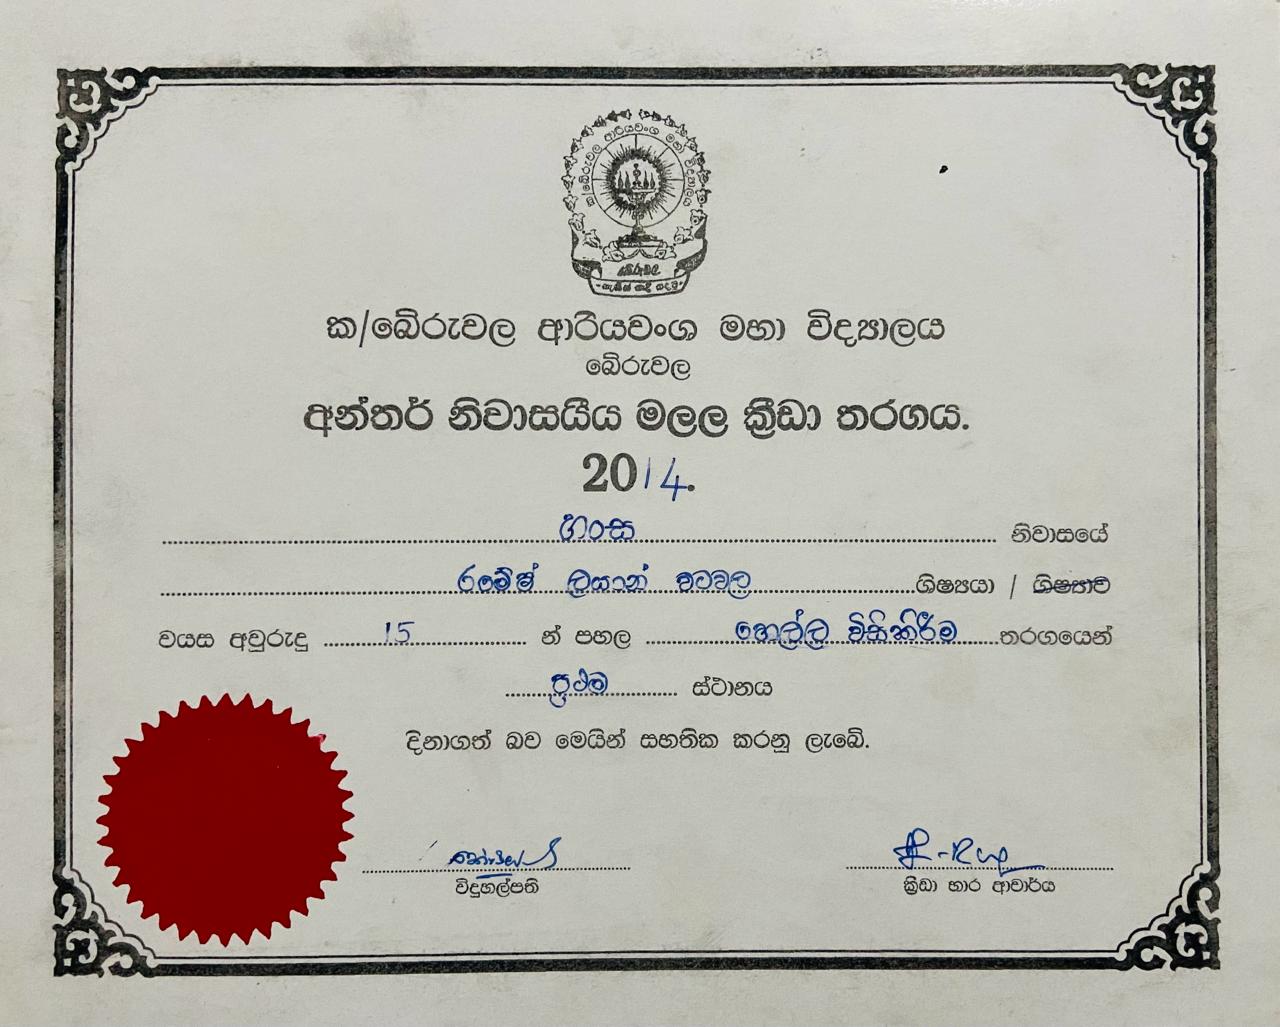 ක/බේරුවල ආරියවංශ මහා විද්‍යාලය
බේරුවල
ක/බේරුවල ආරියවංශ මහා විද්‍යාලය
බේරුවල
අන්තර් නිවාසයීය මලල ක්‍රීඩා තරගය.
2014.
හංස නිවාසයේ
රමේෂ් ලසාන් වටවල ශිෂ්‍යයා / ශිෂ්‍යාව
වයස අවුරුදු 15 න් පහල හෙල්ල විසිකිරීම තරගයෙන්
ප්‍රථම ස්ථානය
දිනාගත් බව මෙයින් සහතික කරනු ලැබේ.
විදුහල්පති
ක්‍රීඩා භාර ආචාර්ය